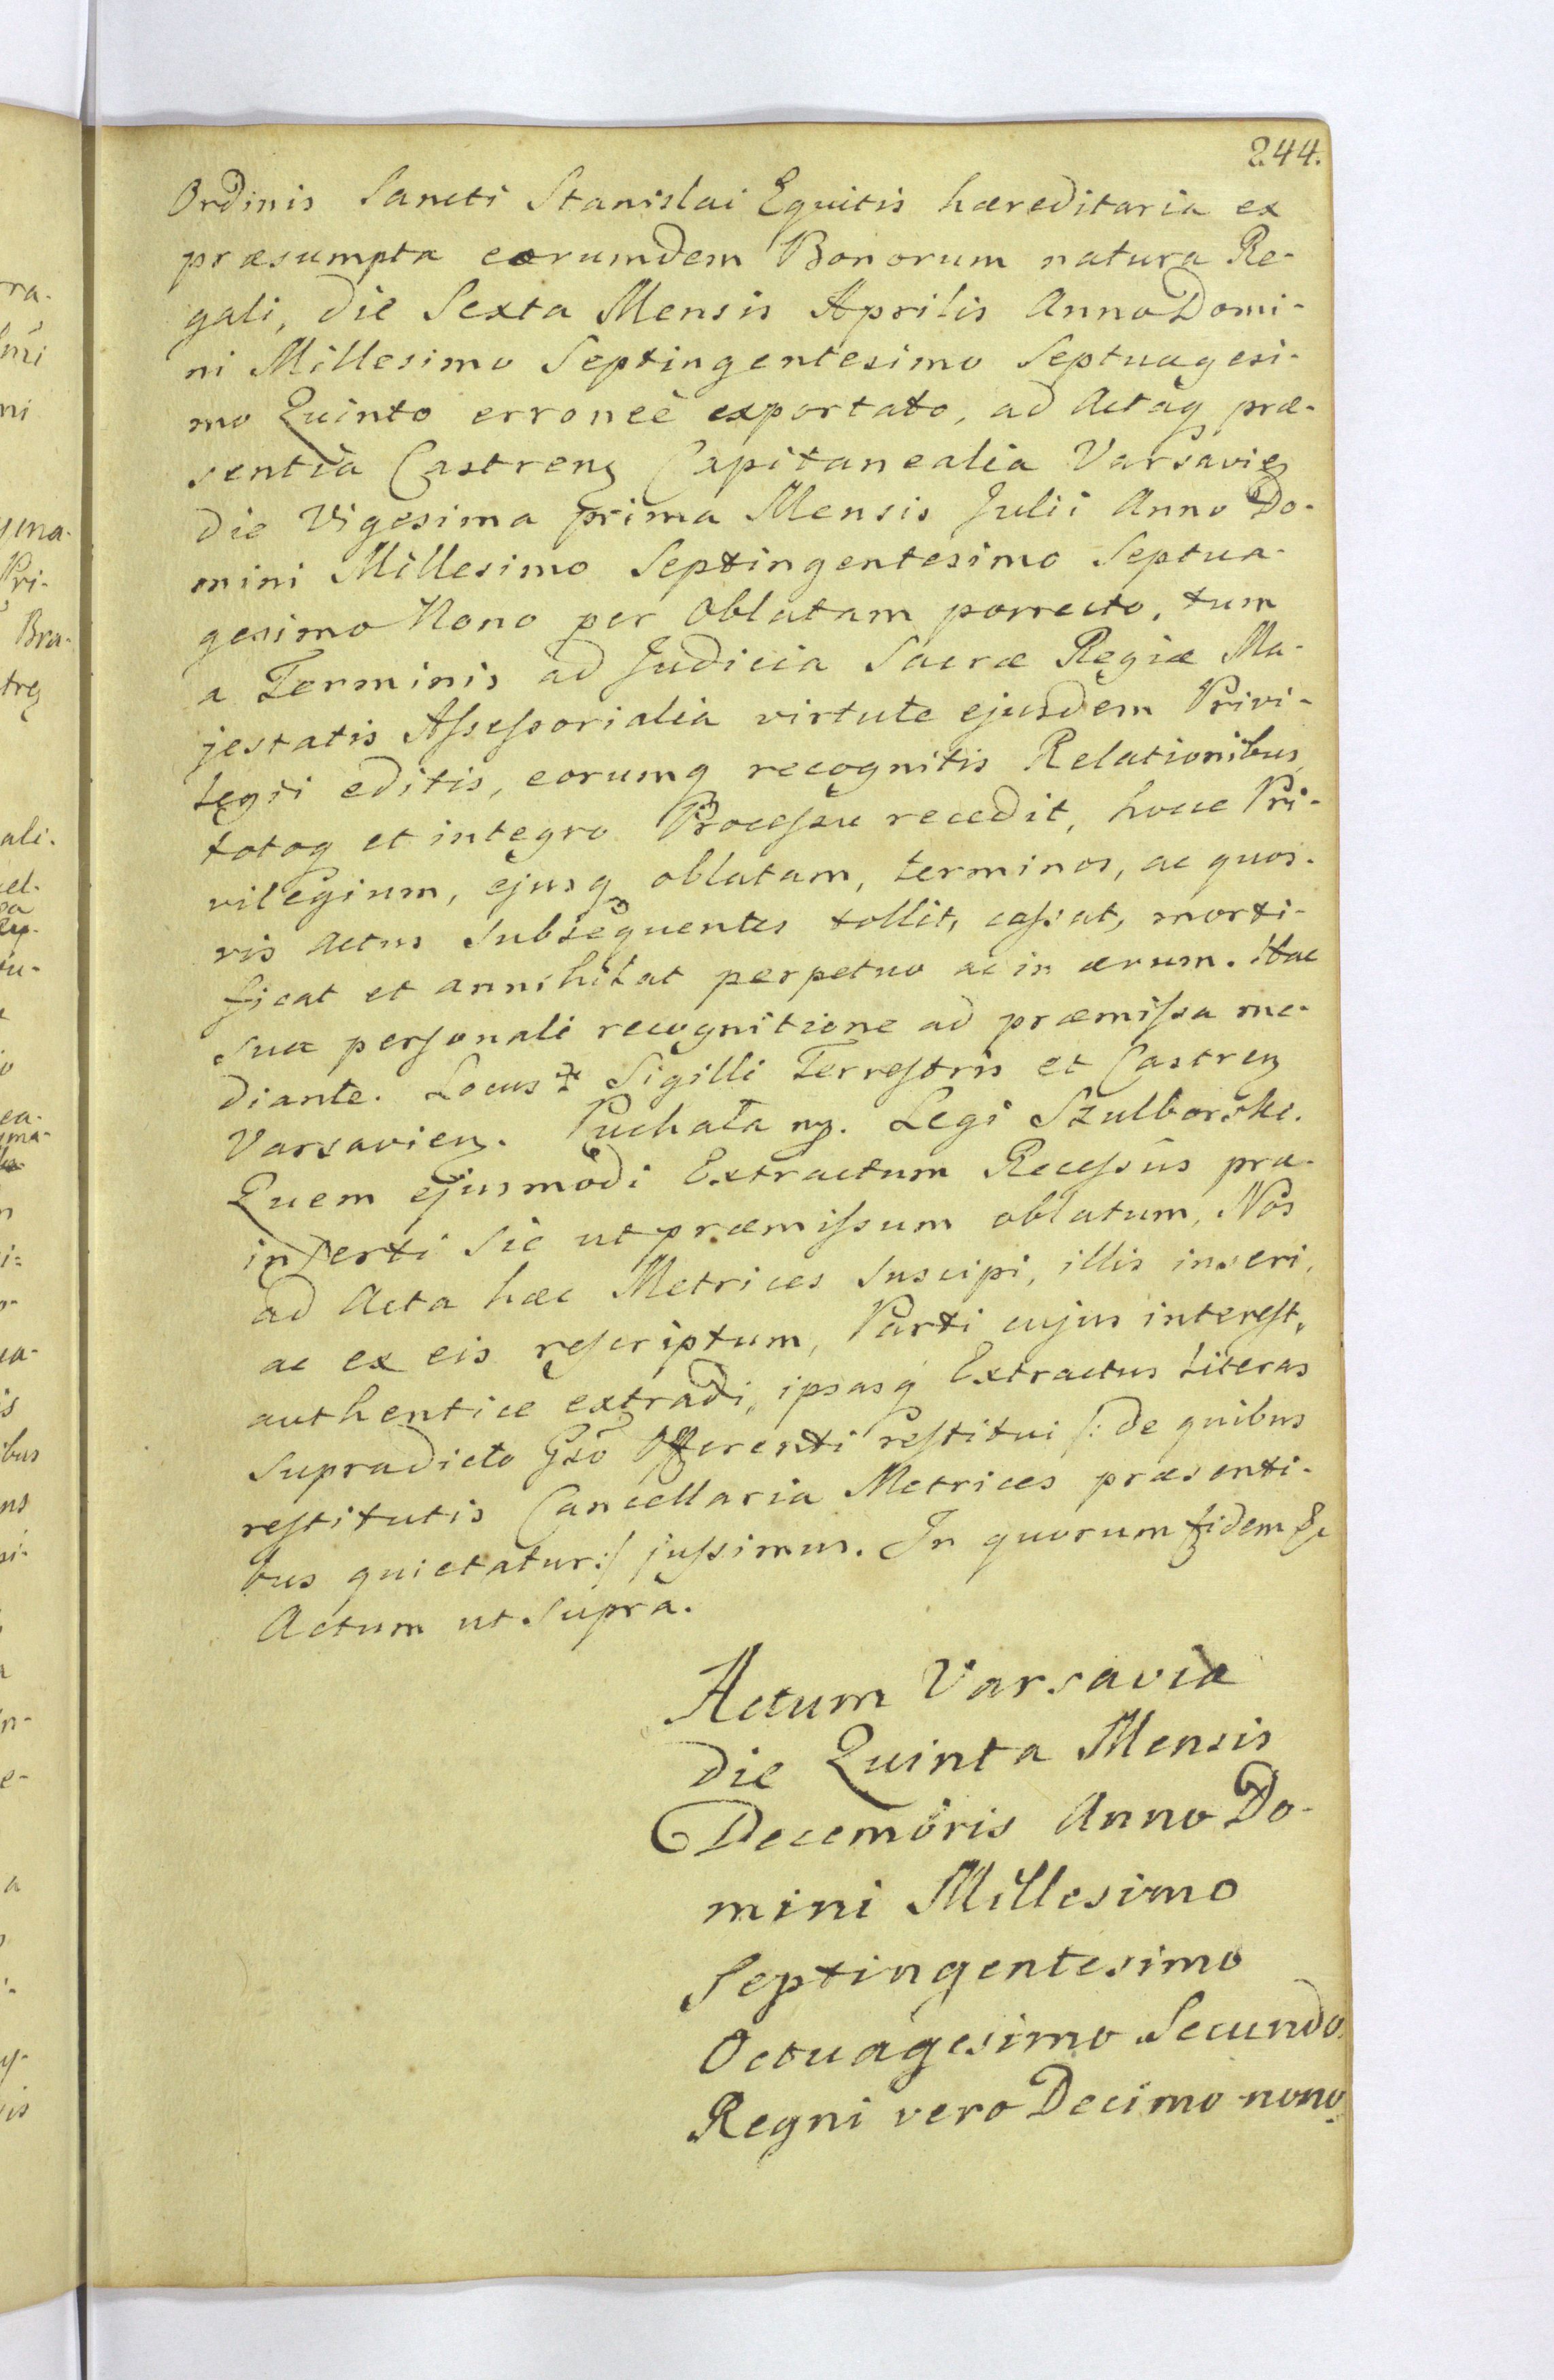 244.
Ordinis Sancti Stanislai Equitis hæreditaria ex
præsumpta eorumdem Bonorum natura Re-
gali, die Sexta Mensis Aprilis Anno Domi-
ni Millesimo Septingentesimo Septuagesi-
mo Quinto erroneè exportato, ad Actaq præ-
sentia Castrenȝ Capitanealia Varsavieȝ
die Vigesima prima Mensis Julii Anno Do-
mini Millesimo Septingentesimo Septua-
gesimo Nono per Oblatam porrecto, tum
a Terminis ad Judicia Sacræ Regiæ Ma-
jestatis Assessorialia virtute ejusdem Privi-
legii editis, eorumq recognitis Relationibus,
totoq et integro Processu recedit, hocce Pri-
vilegium, ejusq oblatam, terminos, ac quos-
vis actus Subsequentes tollit, cassat, morti-
ficat et annihilat perpetuo ac in ævum. Hac
Sua personali recognitione ad præmissa me-
diante. Locus Sigilli Terrestris et Castreȝ
Varsavienȝ. Puchała mȝ. Legi Szulborski.
Quem ejusmodi Extractum Recessûs præ-
inserti Sic ut præmissum oblatum, Nos
ad Acta hæc Metrices Suscipi, illis inseri,
ac ex eis rescriptum, Parti cujus interest,
authentice extradi, ipsasq Extractus Literas
Supradicto Gsõ Offerenti restitui /: de quibus
restitutis Cancellaria Metrices præsenti-
bus quietatur :/ jussimus. In quorum fidem &c
Actum ut Supra.
Actum Varsaviæ
die Quinta Mensis
Decembris Anno Do-
mini Millesimo
Septingentesimo
Octuagesimo Secundo.
Regni vero Decimo-nono